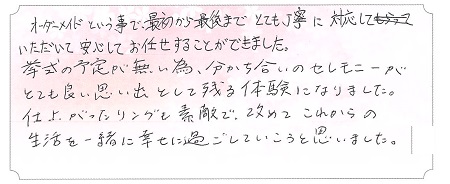 オーダーメイドという事で、最初から最後までとても丁寧に対応して
いただいて安心してお任せすることができました。
挙式の予定が無い為、分かち合いのセレモニーが
とても良い思い出として残る体験になりました。
仕上がったリングも素敵で、改めてこれからの
生活を一緒に幸せに過ごしていこうと思いました。